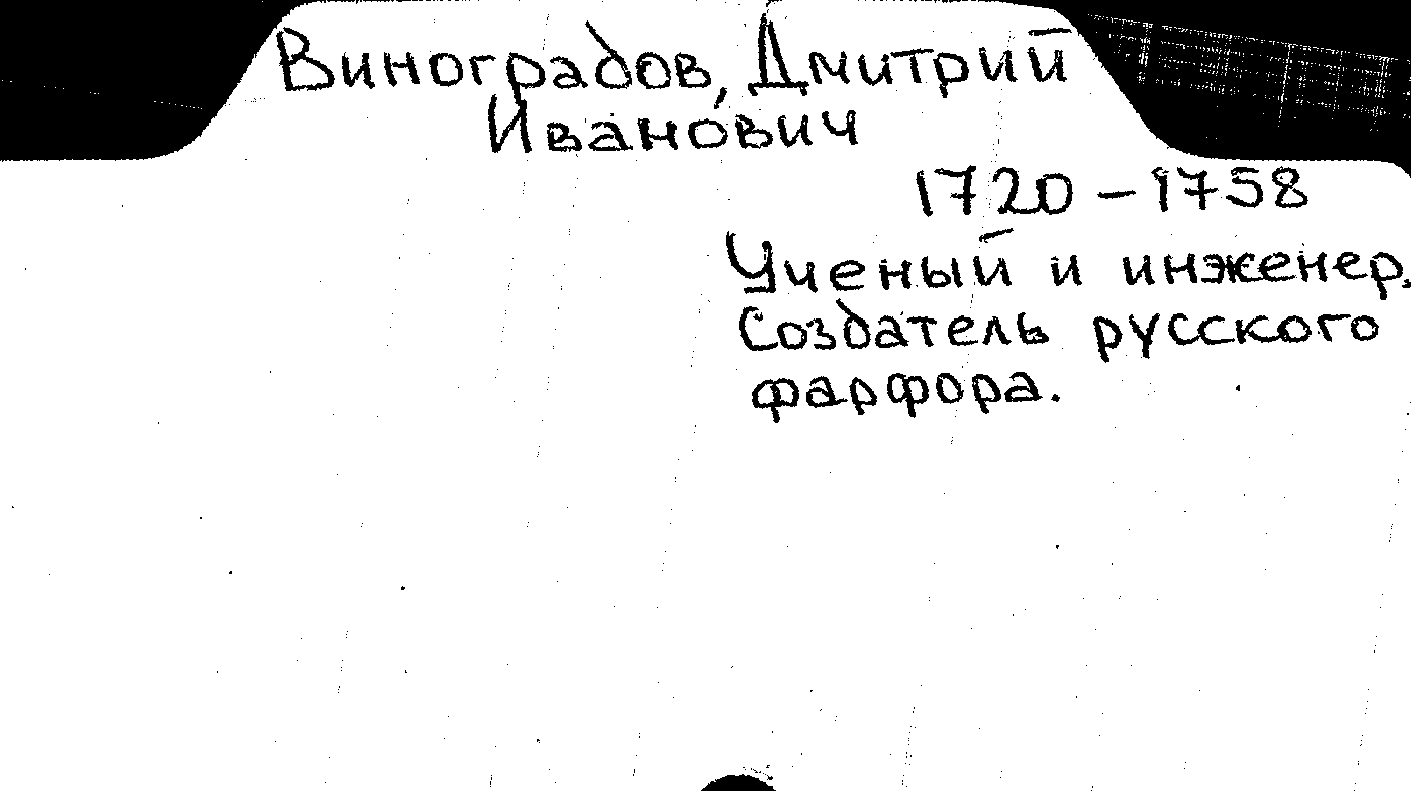 Виноградов, Дмитрий
Иванович
1720 – 1758
Ученый и инженер.
Создатель русского
фарфора.